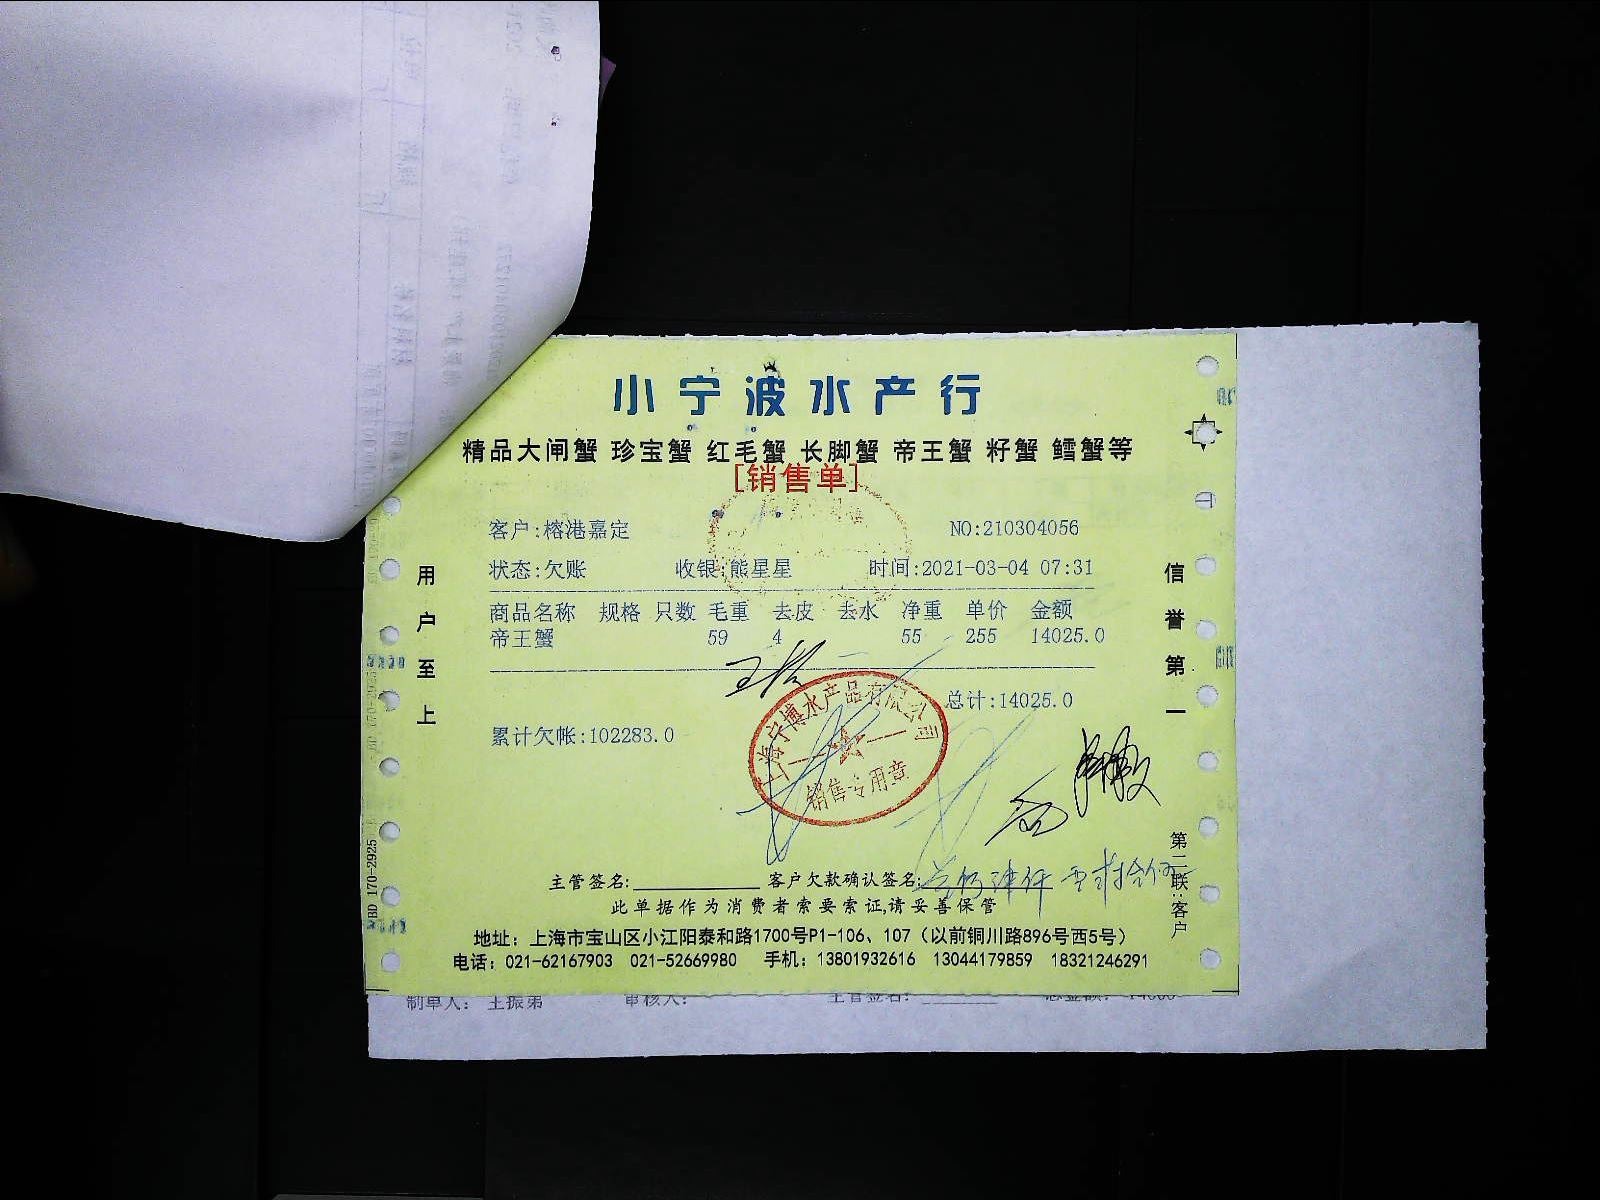 小宁波水产行
精品大闸蟹 珍宝蟹 红毛蟹 长脚蟹 帝王蟹 籽蟹 鳕蟹等
[销售单]
客户:榕港嘉定 NO:210304056
状态:欠账 收银:熊星星 时间:2021-03-04 07:31
商品名称 规格 只数 毛重 去皮 去水 净重 单价 金额
帝王蟹 59 4 55 255 14025.0
总计:14025.0
累计欠帐:102283.0
上海宁博水产品有限公司
销售专用章
主管签名: 客户欠款确认签名:
此单据作为消费者索要索证,请妥善保管
地址：上海市宝山区小江阳泰和路1700号P1-106、107（以前铜川路896号西5号）
电话：021-62167903 021-52669980 手机：13801932616 13044179859 18321246291
用户至上
信誉第一
第二联:客户
BD 170-2925
制单人： 王振弟 审核人： 主管签名: